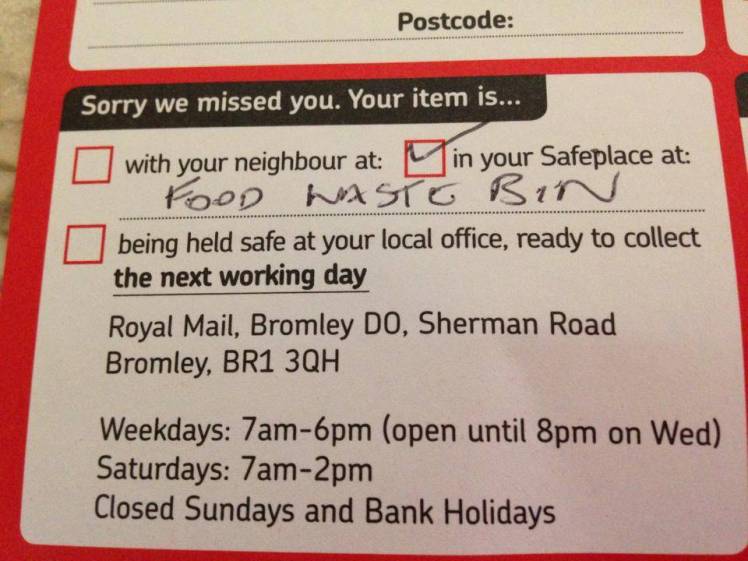 Postcode:
Sorry we missed you. Your item is...
with your neighbour at: in your Safeplace at:
FOOD WASTE BIN
being held safe at your local office, ready to collect
the next working day
Royal Mail, Bromley DO, Sherman Road
Bromley, BR1 3QH
Weekdays: 7am-6pm (open until 8pm on Wed)
Saturdays: 7am-2pm
Closed Sundays and Bank Holidays